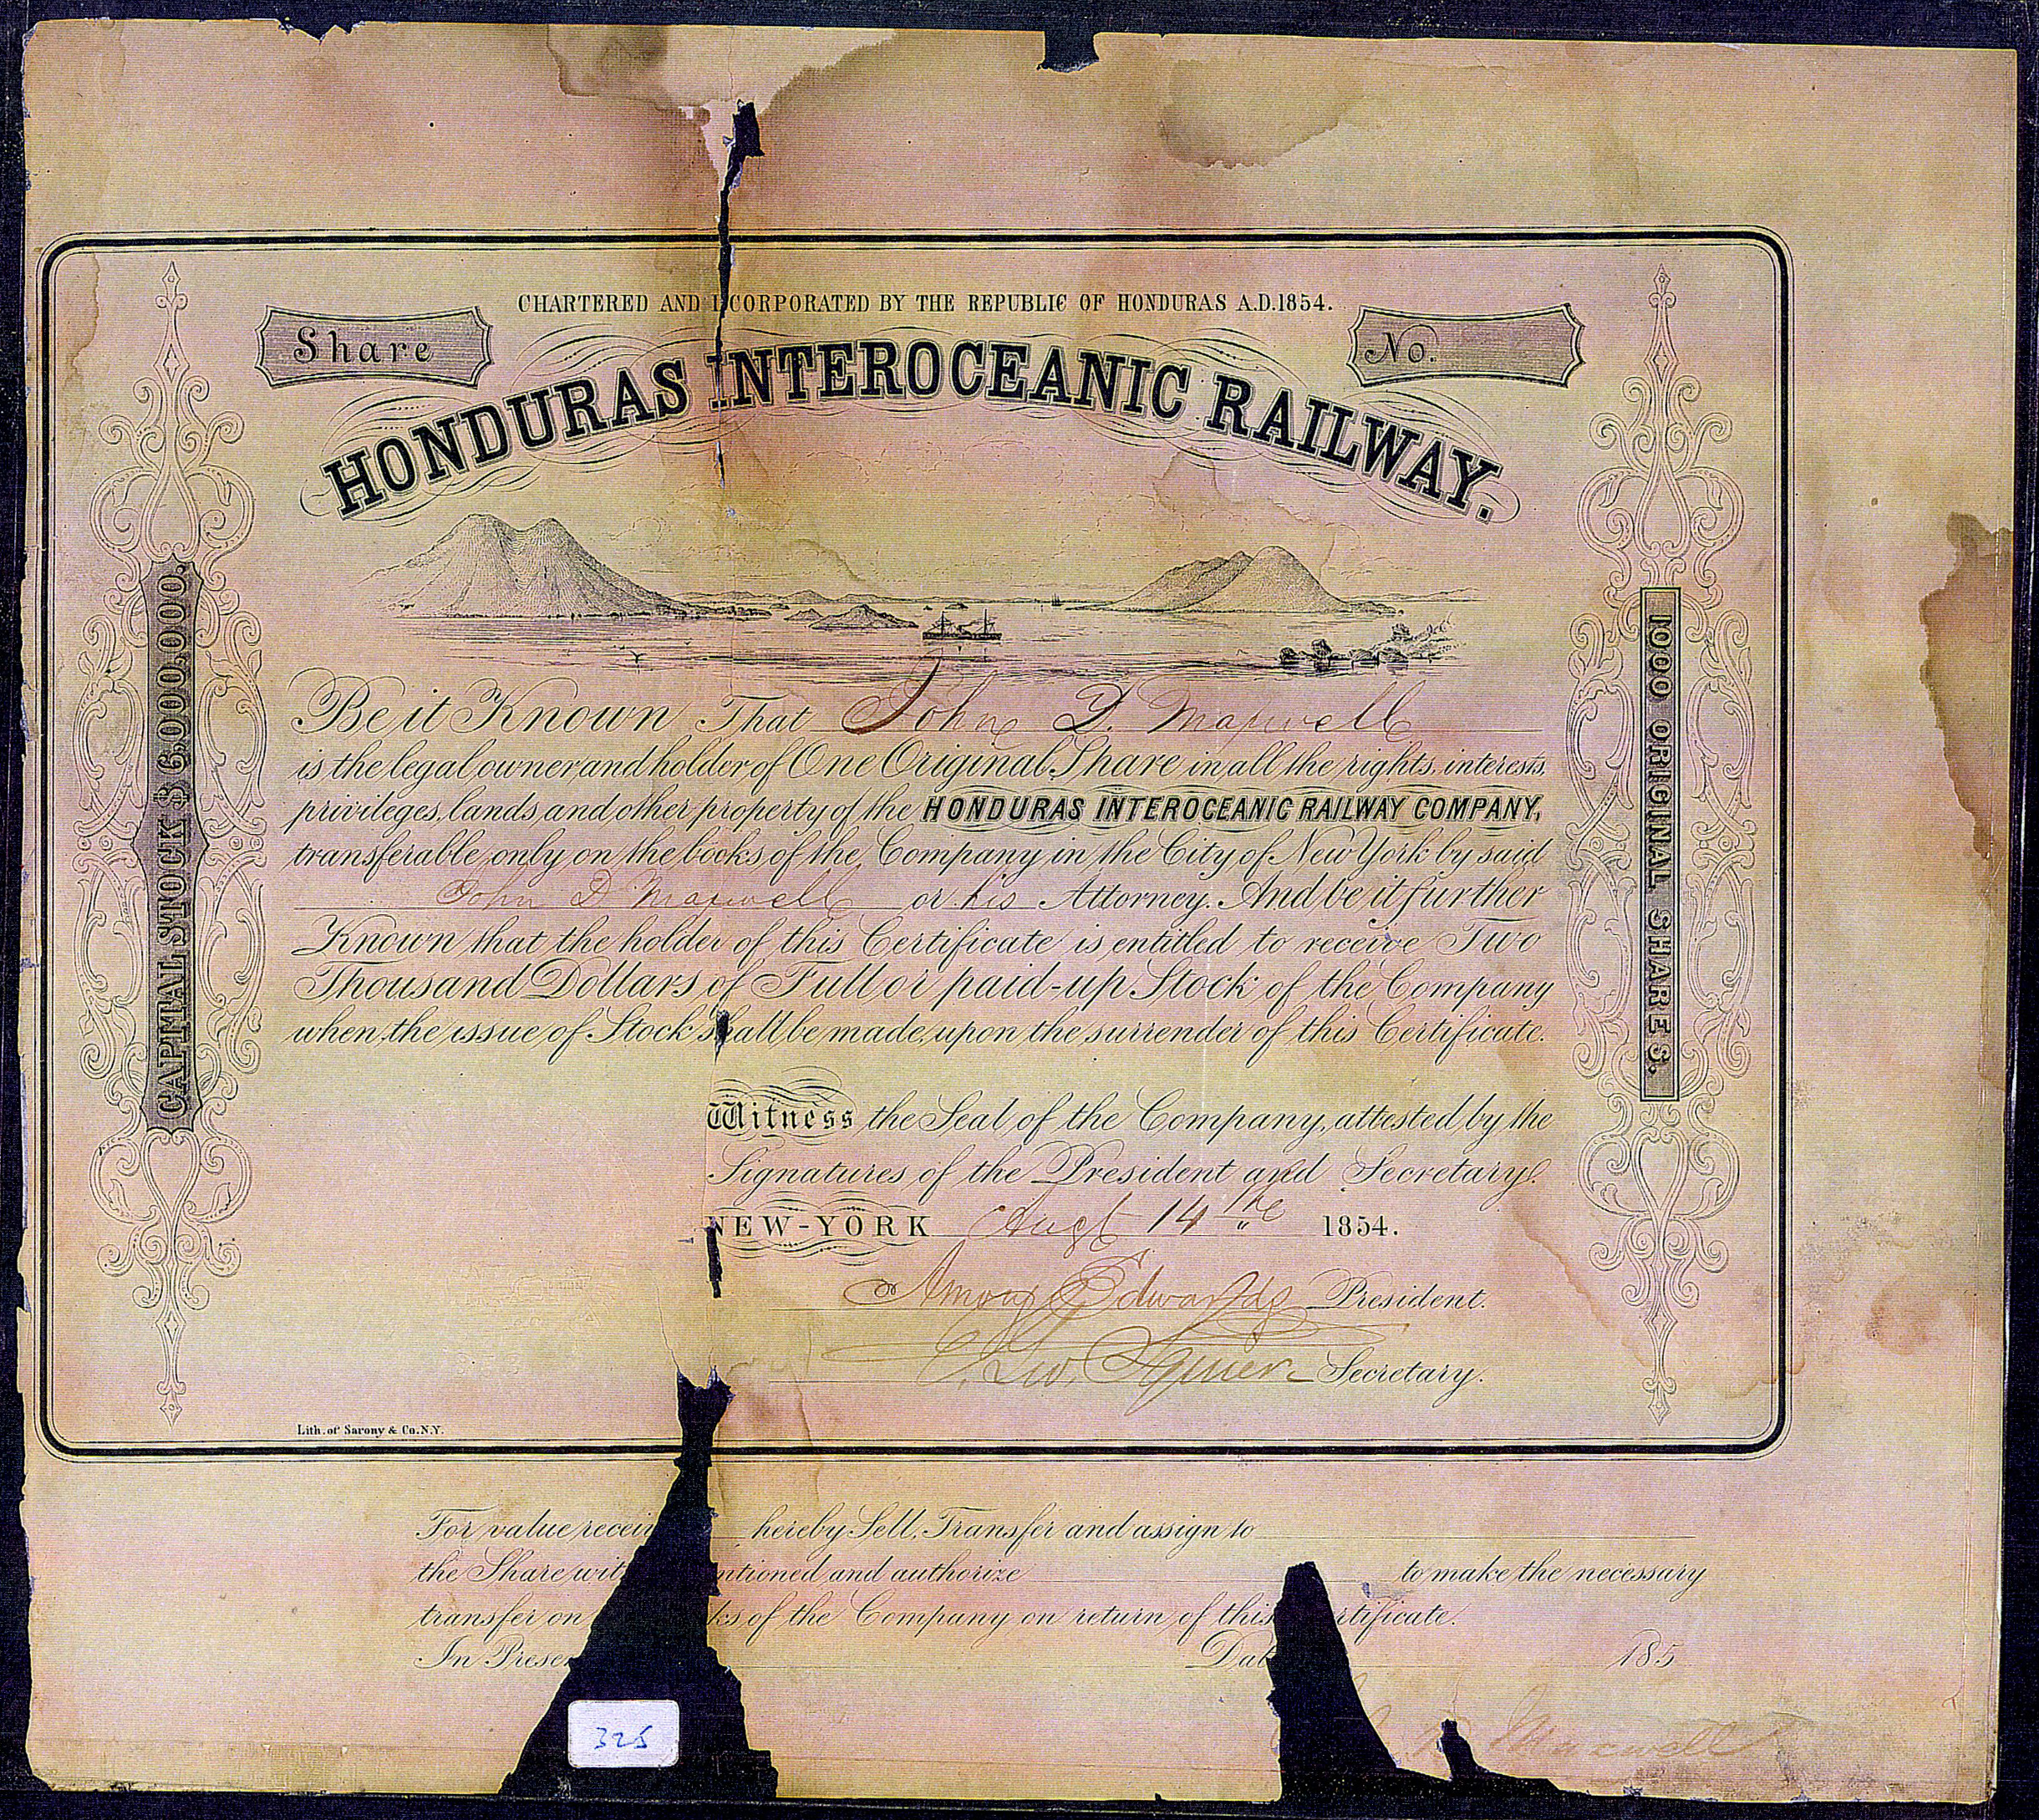 CHARTERED AND I CORPORATED BY THE REPUBLIC OF HONDURAS A.D.1854.
Share
No.
HONDURAS INTEROCEANIC RAILWAY.
CAPITAL STOCK $ 6,000,000.
1000 ORIGINAL SHARES.
Be it Known That John D. Maxwell
is the legal owner and holder of One Original Share in all the rights, interests,
privileges, lands and other property of the HONDURAS INTEROCEANIC RAILWAY COMPANY,
transferable only on the books of the Company in the City of New York by said
John D Maxwell or his Attorney. And be it further
Known that the holder of this Certificate is entitled to receive Two
Thousand Dollars of Full or paid-up Stock of the Company
when the issue of Stock shall be made, upon the surrender of this Certificate.
Witness the Seal of the Company, attested by the
Signatures of the President and Secretary.
NEW-YORK Augt 14th 1854.
Amory Edwards President.
E. Geo. Squier Secretary.
Lith. of Sarony & Co. N.Y.
For value receiv hereby Sell, Transfer and assign to
the Share wit ntioned and authorize to make the necessary
transfer on ks of the Company on return of this rtificate.
In Presen Dat 185
Maxwell
325